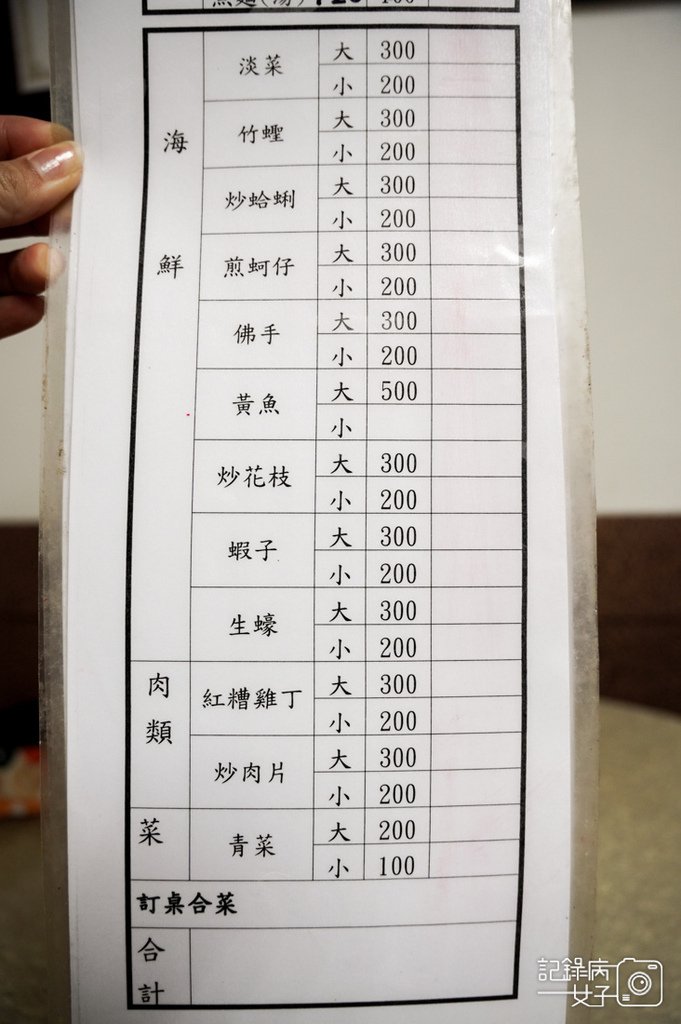 煮麵(湯) 120 100
海鮮
淡菜 大 300
小 200
竹蟶 大 300
小 200
炒蛤蜊 大 300
小 200
煎蚵仔 大 300
小 200
佛手 大 300
小 200
黃魚 大 500
小
炒花枝 大 300
小 200
蝦子 大 300
小 200
生蠔 大 300
小 200
肉類
紅糟雞丁 大 300
小 200
炒肉片 大 300
小 200
菜
青菜 大 200
小 100
訂桌合菜
合計
記錄病
女子